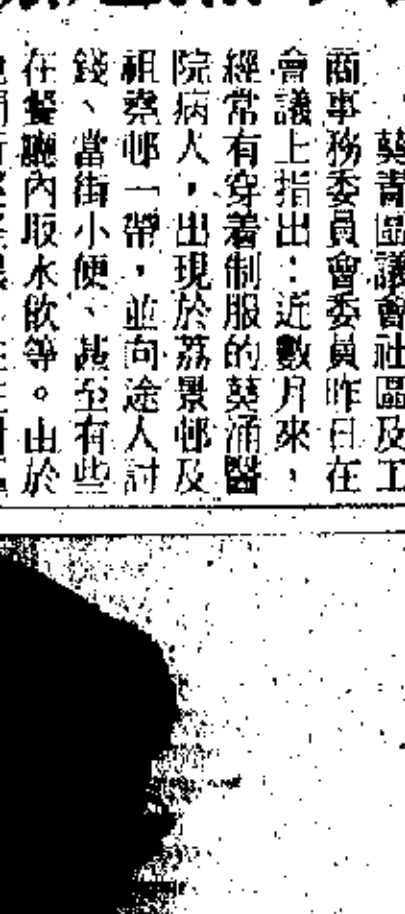 葵青區議會社區及工
商事務委員會委員昨日在
會議上指出：近數月來，
經常有穿着制服的葵涌醫
院病人，出現於荔景邨及
祖堯邨一帶，並向途人討
錢、當街小便、甚至有些
在餐廳內取水飲等。由於